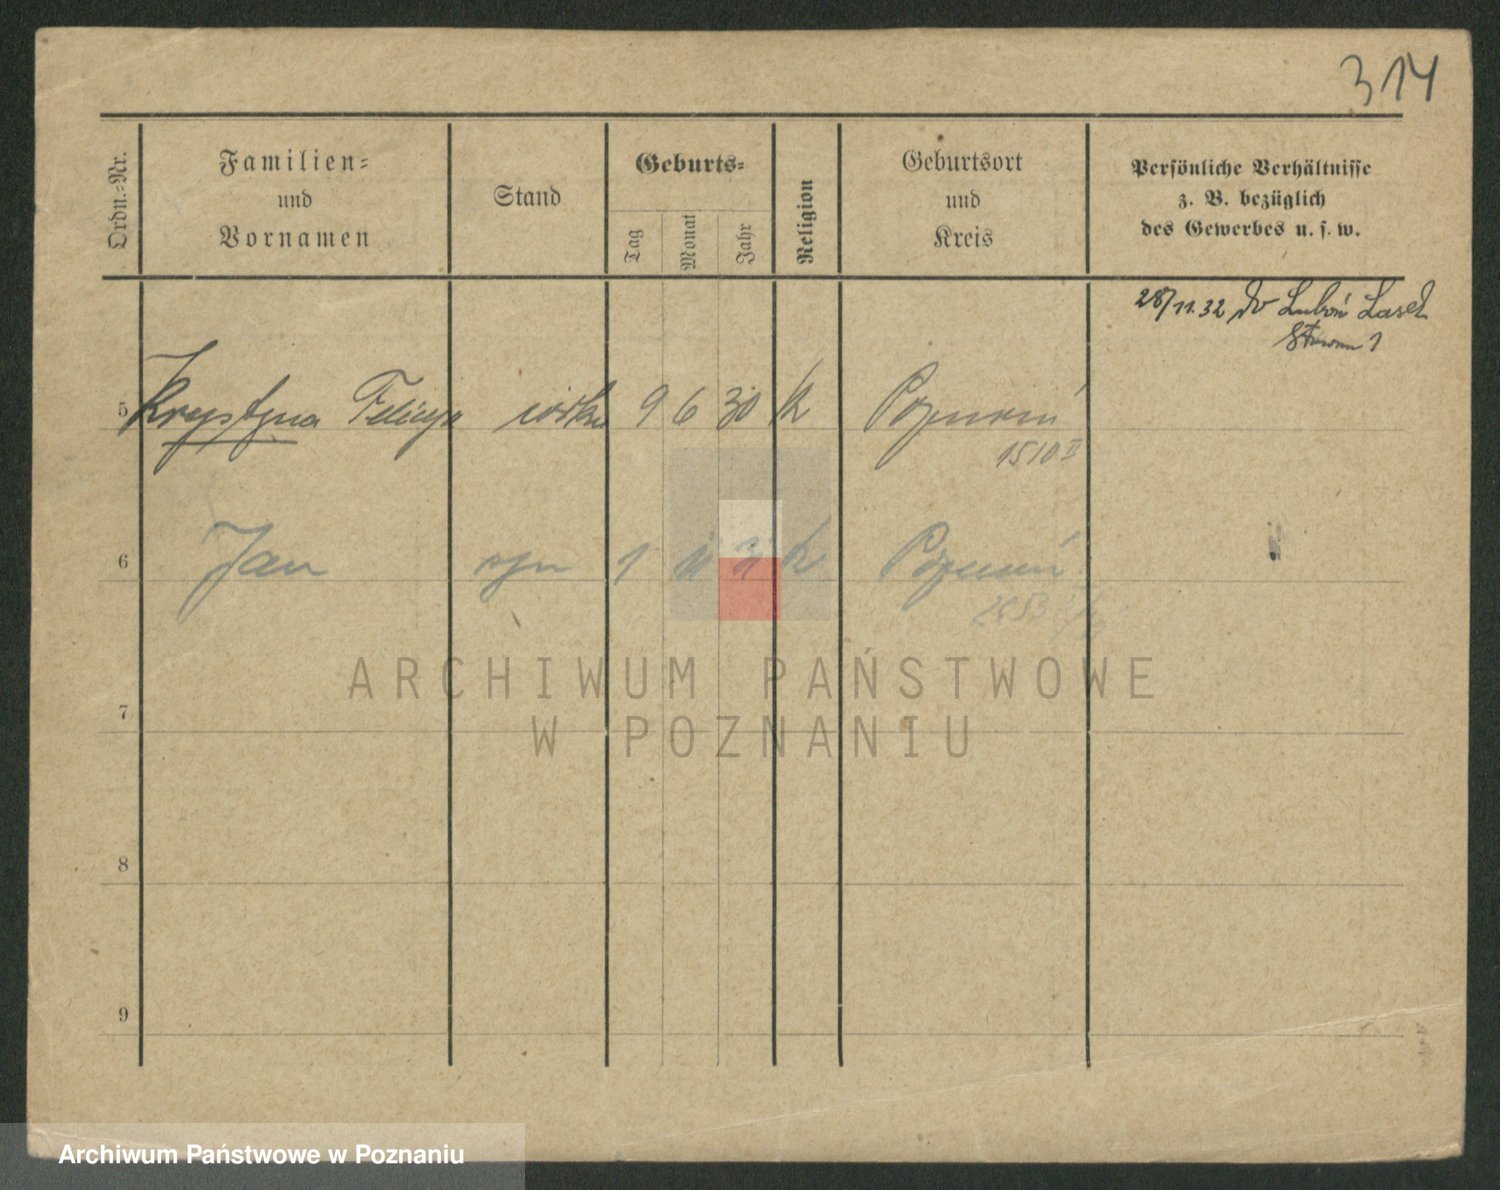 314
Ordn.=Nr.
Familien=
und
Vornamen
Stand
Geburts=
Tag
Monat
Jahr
Religion
Geburtsort
und
Kreis
Persönliche Verhältnisse
z. B. bezüglich
des Gewerbes u. s. w.
28/11.32 do Luboń Lasek
5 Krystyna Felicja córka 9 6 30 k Poznań
1510 II
6 Jan syn 1 11 31 k Poznań
ARCHIWUM PAŃSTWOWE
W POZNANIU
7
8
9
Archiwum Państwowe w Poznaniu